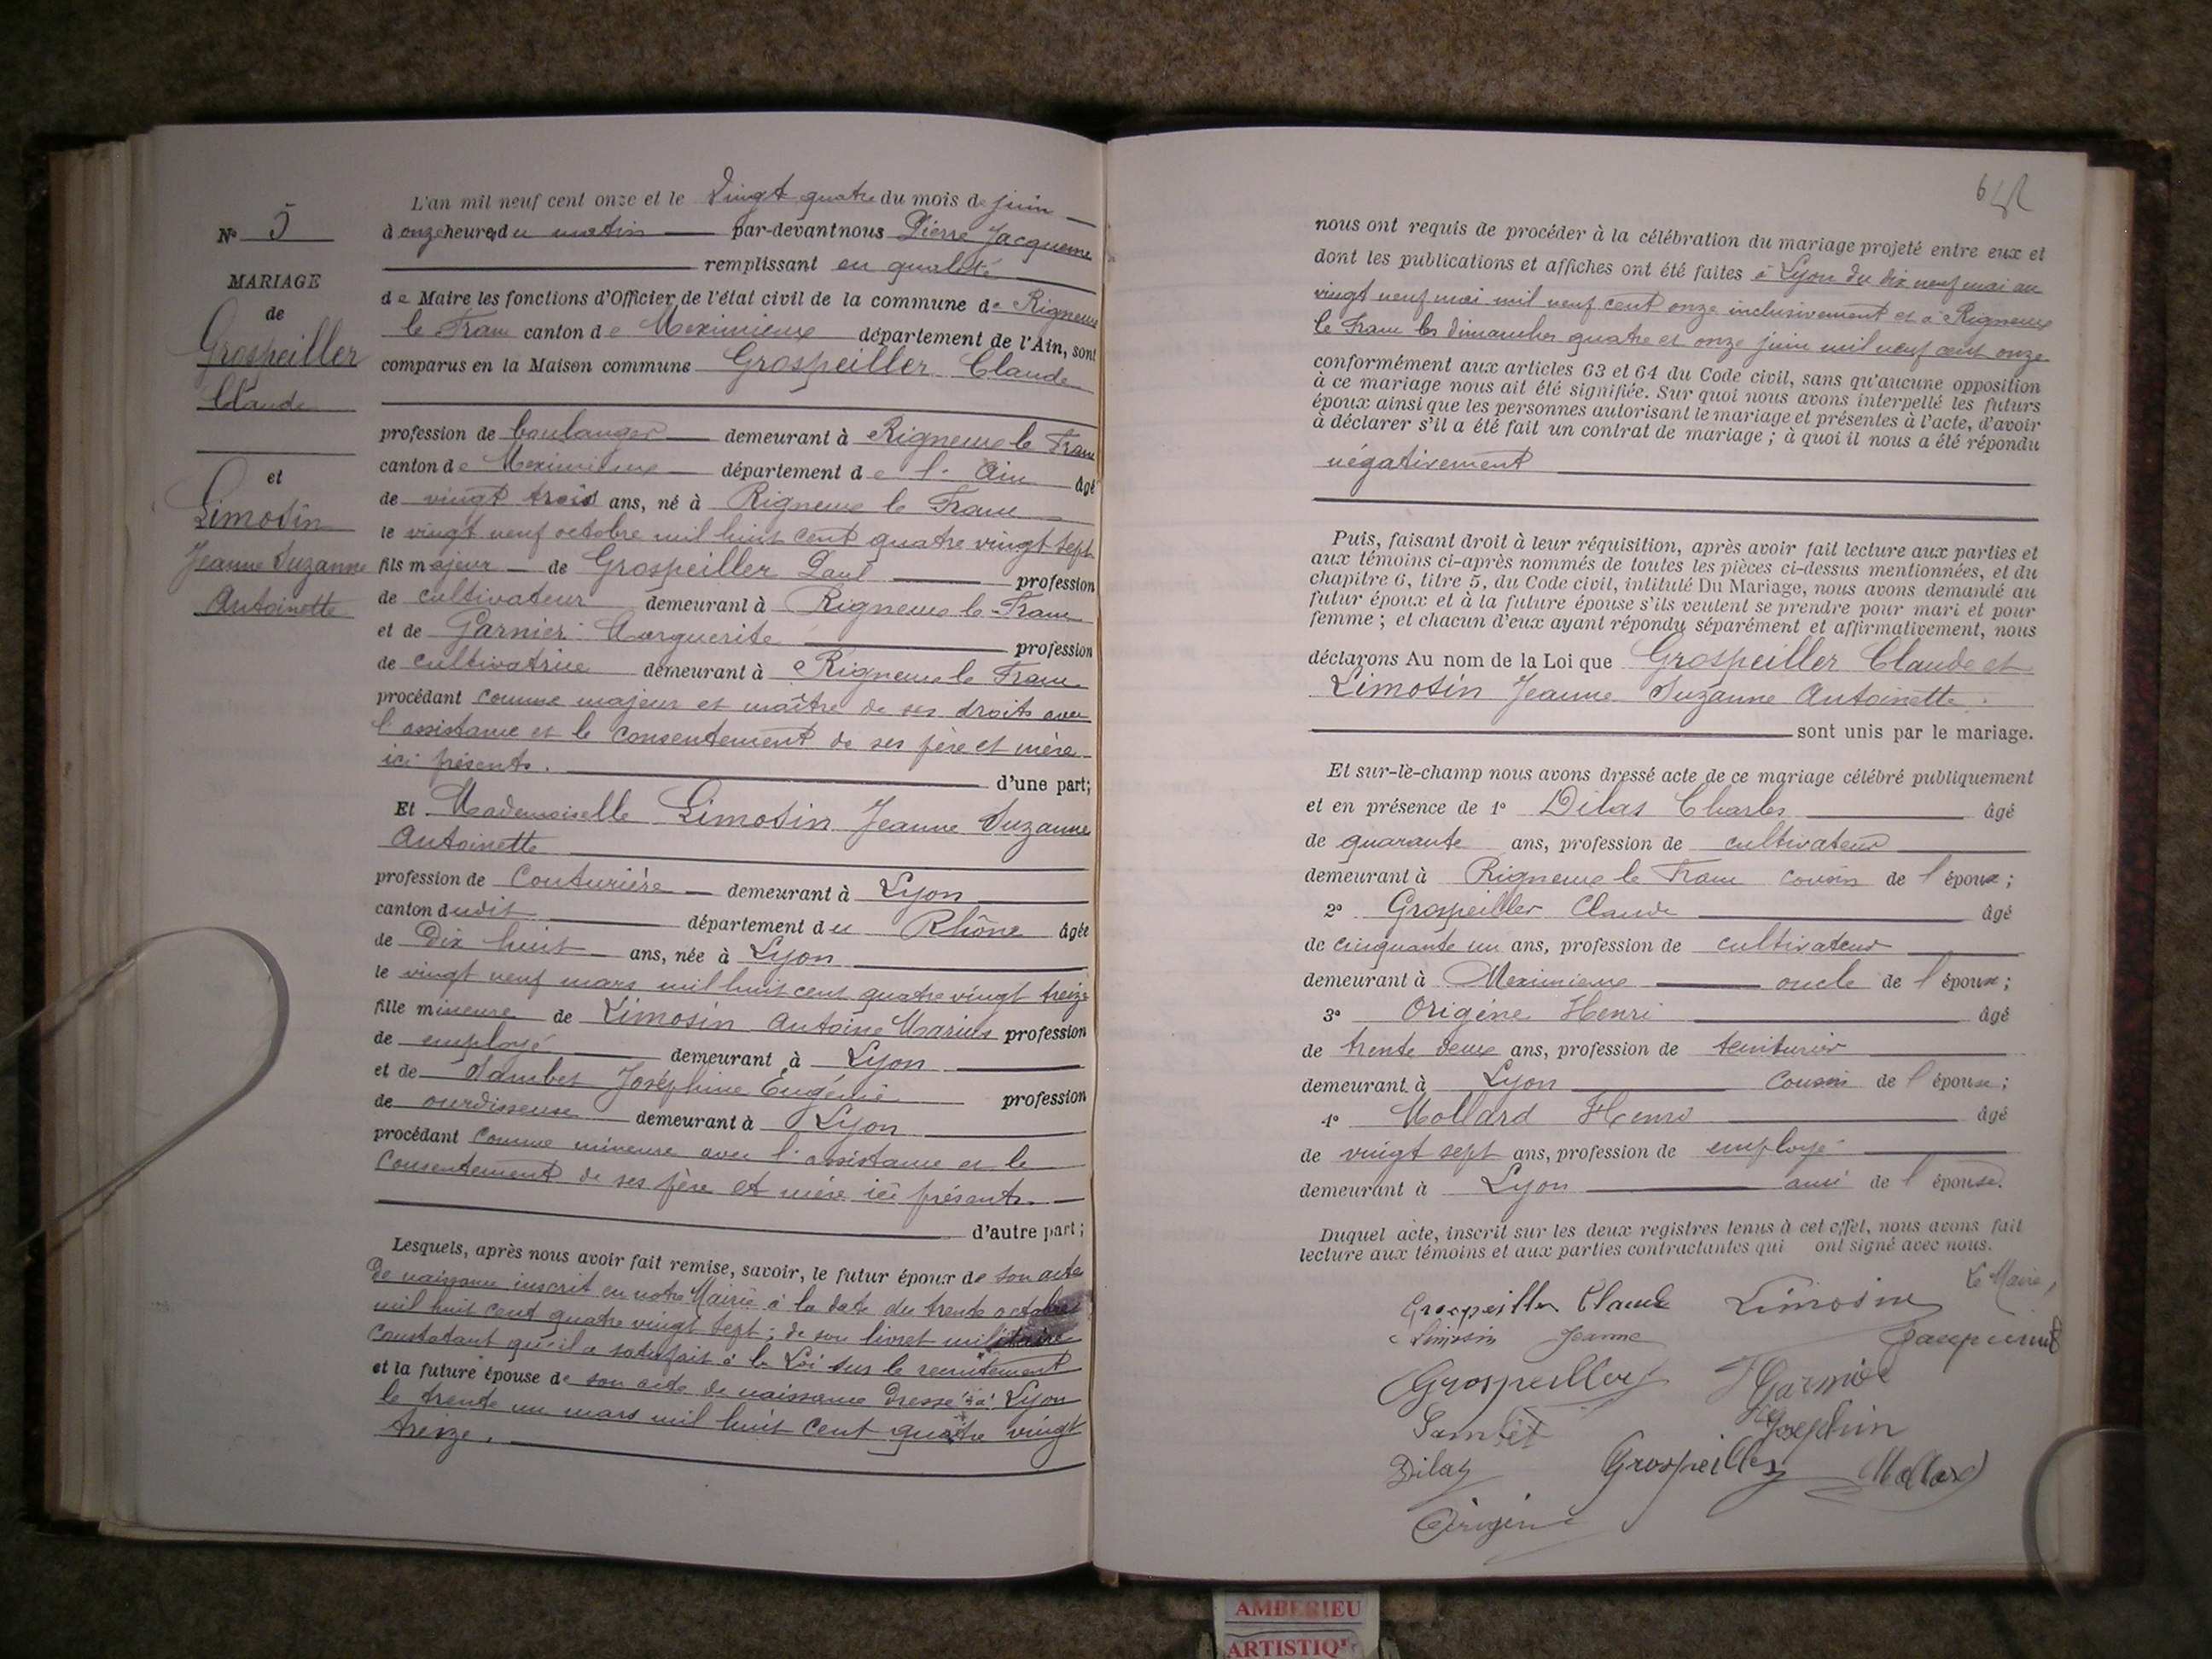 N° 5
MARIAGE
de
Grospeiller
Claude
et
Limosin
Jeanne Suzanne
Antoinette
L'an mil neuf cent onze et le Vingt quatre du mois de juin
à onze heures du matin par-devant nous Pierre Jacquemet
remplissant en qualité
de Maire les fonctions d'Officier de l'état civil de la commune de Rigneux
le Franc canton de Meximieux département de l'Ain, sont
comparus en la Maison commune Grospeiller Claude
profession de boulanger demeurant à Rigneux le Franc
canton de Meximieux département de l'Ain âgé
de vingt trois ans, né à Rigneux le Franc
le vingt neuf octobre mil huit cent quatre vingt sept
fils majeur de Grospeiller Paul profession
de cultivateur demeurant à Rigneux le Franc
et de Garnier Marguerite profession
de cultivatrice demeurant à Rigneux le Franc
procédant comme majeur et maître de ses droits avec
l'assistance et le consentement de ses père et mère
ici présents. d'une part;
Et Mademoiselle Limosin Jeanne Suzanne
Antoinette
profession de Couturière demeurant à Lyon
canton dudit département du Rhône âgée
de Dix huit ans, née à Lyon
le vingt neuf mars mil huit cent quatre vingt treize
fille mineure de Limosin Antoine Marius profession
de employé demeurant à Lyon
et de Sambet Joséphine Eugénie profession
de ourdisseuse demeurant à Lyon
procédant comme mineure avec l'assistance et le
consentement de ses père et mère ici présents.
d'autre part;
Lesquels, après nous avoir fait remise, savoir, le futur époux de son acte
de naissance inscrit en notre Mairie à la date du trente octobre
mil huit cent quatre vingt sept; de son livret militaire
constatant qu'il a satisfait à la Loi sur le recrutement
et la future épouse de son acte de naissance dressé à Lyon
le trente un mars mil huit cent quatre vingt
treize.
nous ont requis de procéder à la célébration du mariage projeté entre eux et
dont les publications et affiches ont été faites à Lyon du dix neuf mai au
vingt neuf mai mil neuf cent onze inclusivement et à Rigneux
le Franc les dimanches quatre et onze juin mil neuf cent onze
conformément aux articles 63 et 64 du Code civil, sans qu'aucune opposition
à ce mariage nous ait été signifiée. Sur quoi nous avons interpellé les futurs
époux ainsi que les personnes autorisant le mariage et présentes à l'acte, d'avoir
à déclarer s'il a été fait un contrat de mariage; à quoi il nous a été répondu
négativement
Puis, faisant droit à leur réquisition, après avoir fait lecture aux parties et
aux témoins ci-après nommés de toutes les pièces ci-dessus mentionnées, et du
chapitre 6, titre 5, du Code civil, intitulé Du Mariage, nous avons demandé au
futur époux et à la future épouse s'ils veulent se prendre pour mari et pour
femme; et chacun d'eux ayant répondu séparément et affirmativement, nous
déclarons Au nom de la Loi que Grospeiller Claude et
Limosin Jeanne Suzanne Antoinette
sont unis par le mariage.
Et sur-le-champ nous avons dressé acte de ce mariage célébré publiquement
et en présence de 1° Dilas Charles âgé
de quarante ans, profession de cultivateur
demeurant à Rigneux le Franc cousin de l'époux;
2° Grospeiller Claude âgé
de cinquante un ans, profession de cultivateur
demeurant à Meximieux oncle de l'époux;
3° Origène Henri âgé
de trente deux ans, profession de teinturier
demeurant à Lyon Cousin de l'épouse;
4° Mollard Henri âgé
de vingt sept ans, profession de employé
demeurant à Lyon ami de l'épouse.
Duquel acte, inscrit sur les deux registres tenus à cet effet, nous avons fait
lecture aux témoins et aux parties contractantes qui ont signé avec nous.
Le Maire,
Grospeiller Claude Limosin
Limosin Jeanne Jacquemet
Grospeiller Garnier
Sambet Josephin
Dilas Grospeiller Mollard
Origène
AMBERIEU
ARTISTIQ